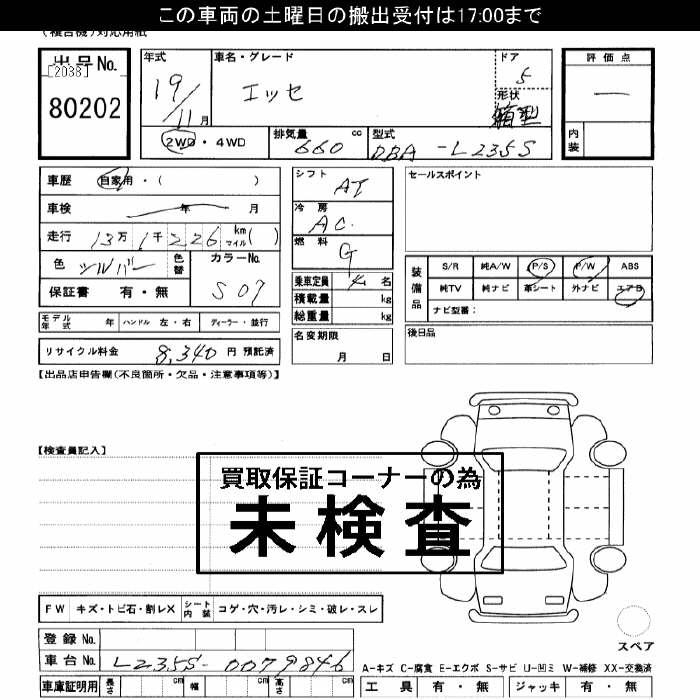 この車両の土曜日の搬出受付は17:00まで
(複合機)対応用紙
出品No.
[2038]
80202
年式
19/11月
車名・グレード
エッセ
ドア
5
形状
箱型
評価点
一
内装
2WD・4WD
排気量 660 cc
型式 DBA-L235S
車歴 自家用・( )
車検 年 月
走行 13万1千226 km マイル( )
色 シルバー
色替
カラーNo.
S07
保証書 有・無
シフト
AT
冷房
AC.
燃料
G
乗車定員 4名
積載量 kg
総重量 kg
セールスポイント
装備品
S/R 純A/W P/S P/W ABS
純TV 純ナビ 革シート 外ナビ エアB
ナビ型番:
モデル年式 年 ハンドル 左・右 ディーラー・並行
リサイクル料金 8,340 円 預託済
名変期限
月 日
後日品
【出品店申告欄(不良箇所・欠品・注意事項等)】
【検査員記入】
買取保証コーナーの為
未検査
FW キズ・トビ石・割レX シート内装 コゲ・穴・汚レ・シミ・破レ・スレ
スペア
登録No.
車台No. L235S-0079846
A-キズ C-腐食 E-エクボ S-サビ U-凹ミ W-補修 XX-交換済
車庫証明用 長さ cm 幅 cm 高さ cm
工具 有・無 ジャッキ 有・無